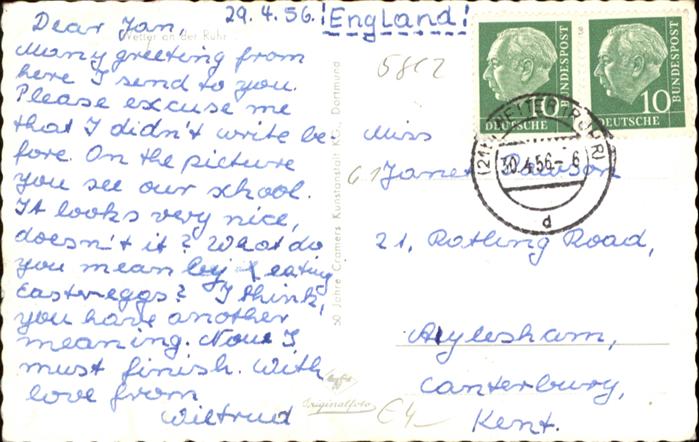 29.4.56. !England!
Dear Jan,
Wetter an der Ruhr
Many greeting from
here I send to you.
Please excuse me
that I didn't write be
fore. On the picture
you see our school.
It looks very nice,
doesn't it? What do
you mean by eating
Easter eggs? I think,
you have another
meaning. Now I
must finish. With
love from
Wiltrud
50 Jahre Cramers Kunstanstalt KG., Dortmund
Originalfoto
5862
61
£4-
Miss
Janet
21, Ratling Road,
Aylesham,
Canterbury,
Kent.
DEUTSCHE BUNDESPOST
10
DEUTSCHE BUNDESPOST
10
WETTER (RUHR)
30.4.56-6
d